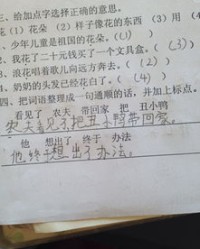 三、给加点字选择正确的意思。
花(1)花朵 (2)样子像花的东西 (3)用 (4
1、少年儿童是祖国的花朵。(1)
2、我花了二十元钱买了一个文具盒。(3)
3、浪花唱着歌儿向远方奔去。(2)
4、奶奶的头发已经花白了。(4)
四、把词语整理成一句通顺的话，并加上标点。
看见了 农夫 带回家 把 丑小鸭
农夫看见了把丑小鸭带回家。
他 想出了 终于 办法
他终于想出了办法。